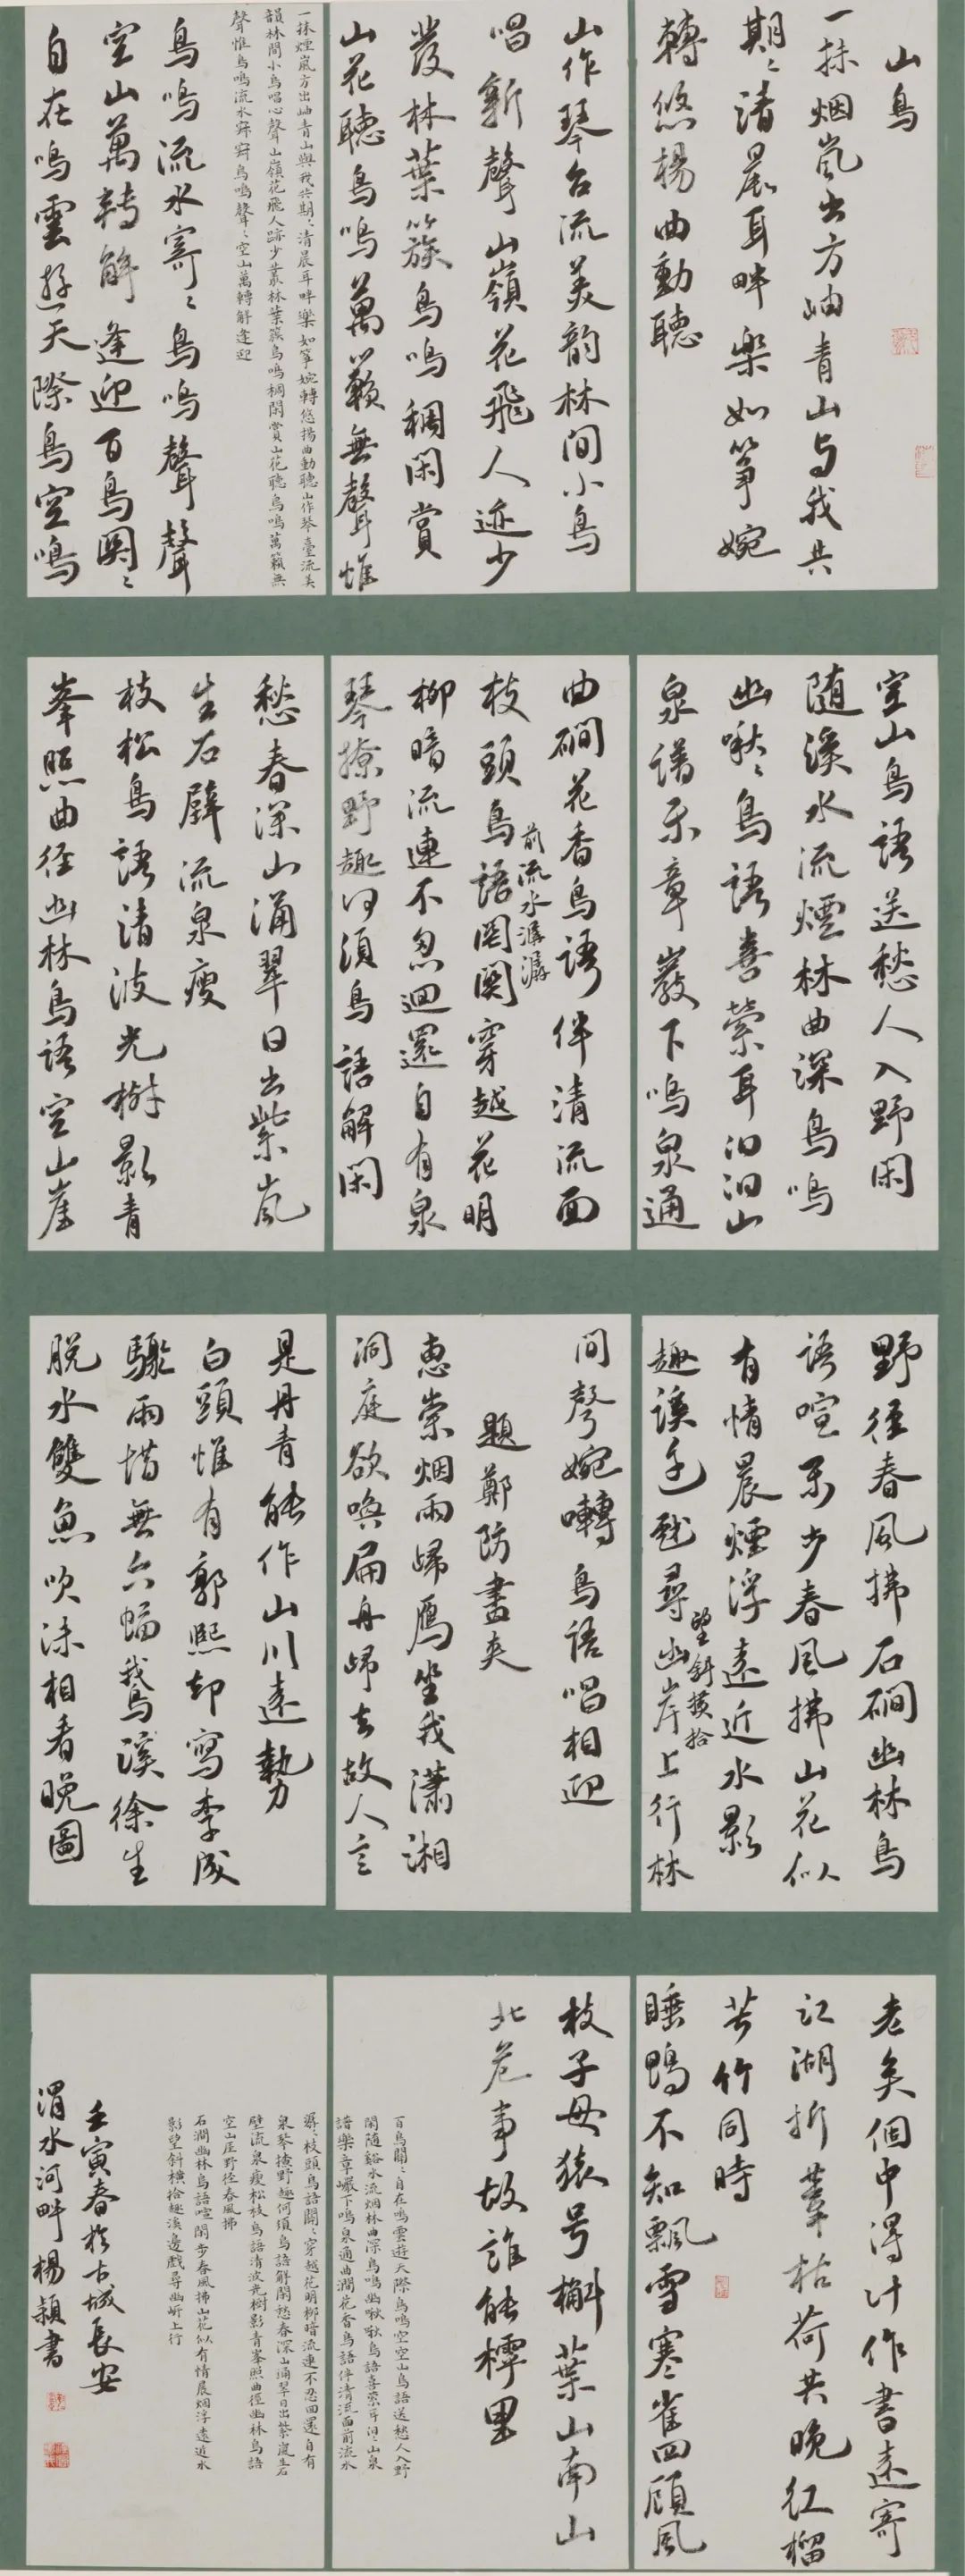 山鳥
一抹烟嵐出方岫青山与我共
期〻清晨耳畔樂如箏婉
轉悠楊曲動聽
山作琴台流美韵林间小鳥
唱新聲山嶺花飛人迹少
叢林葉簇鳥鳴稠闲賞
山花聽鳥鳴萬籟無聲惟
一抹煙嵐方出岫青山與我共期〻清晨耳畔樂如箏婉轉悠揚曲動聽山作琴臺流美
韻林間小鳥唱心聲山嶺花飛人跡少叢林葉簇鳥鳴稠閑賞山花聽鳥鳴萬籟無
聲惟鳥鳴流水寂寂鳥鳴聲〻空山萬轉解逢迎
鳥鳴流水寄〻鳥鳴聲聲
空山萬轉解逢迎百鳥関〻
自在鳴雲遊天際鳥空鳴
空山鳥語送愁人入野闲
随溪水流煙林曲深鳥鳴
幽啾〻鳥語喜縈耳汩汩山
泉譜乐章巖下鳴泉通
曲磵花香鳥語伴清流面
前流水潺潺
枝頭鳥語関関穿越花明
柳暗流連不忍迴還自有泉
琴撩野趣何須鳥語解闲
愁春深山涌翠日出紫嵐
生石壁流泉瘦
枝松鳥語清波光樹影青
峯照曲径幽林鳥語空山崖
野徑春風拂石磵幽林鳥
語喧乐步春風拂山花似
有情晨煙浮遠近水影
望斜横拾
趣溪邊戲尋幽岸上行林
间聲婉囀鳥语唱相迎
題鄭防畫夾
惠崇烟雨歸鴈坐我瀟湘
洞庭欲喚扁舟歸去故人言
是丹青能作山川遠勢
白頭惟有郭熙却寫李成
驟雨惜無六幅鵞溪徐生
脱水雙魚吹沫相看晚圖
老矣個中得计作書遠寄
江湖折葦枯荷共晚红榴
苦竹同時
睡鴨不知飄雪寒雀四顧風
枝子母猿号槲葉山南山
北危事故誰能樗里
百鳥關〻自在鳴雲遊天際鳥鳴空空山鳥語送愁人入野
閑隨谿水流烟林曲深鳥鳴幽啾啾鳥語喜縈耳汩〻山泉
譜樂章巖下鳴泉通曲澗花香鳥語伴清流面前流水
潺〻枝頭鳥語關〻穿越花明柳暗流連不忍回還自有
泉琴撩野趣何須鳥語解閑愁春深山涌翠日出紫嵐生石
壁流泉瘦松枝鳥語清波光樹影青峯照曲徑幽林鳥語
空山崖野徑春風拂
石澗幽林鳥語喧閑步春風拂山花似有情晨烟浮遠近水
影望斜橫拾趣溪邊戲尋幽岸上行
壬寅春於古城長安
渭水河畔楊穎書